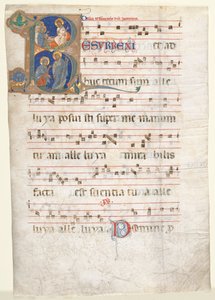 ESURREXI et ad
huc tecum sum alle
luya posuisti super me manum
tuam alle luya mirabilis
facta est scientia tua alle
luya alle luya. Domine p